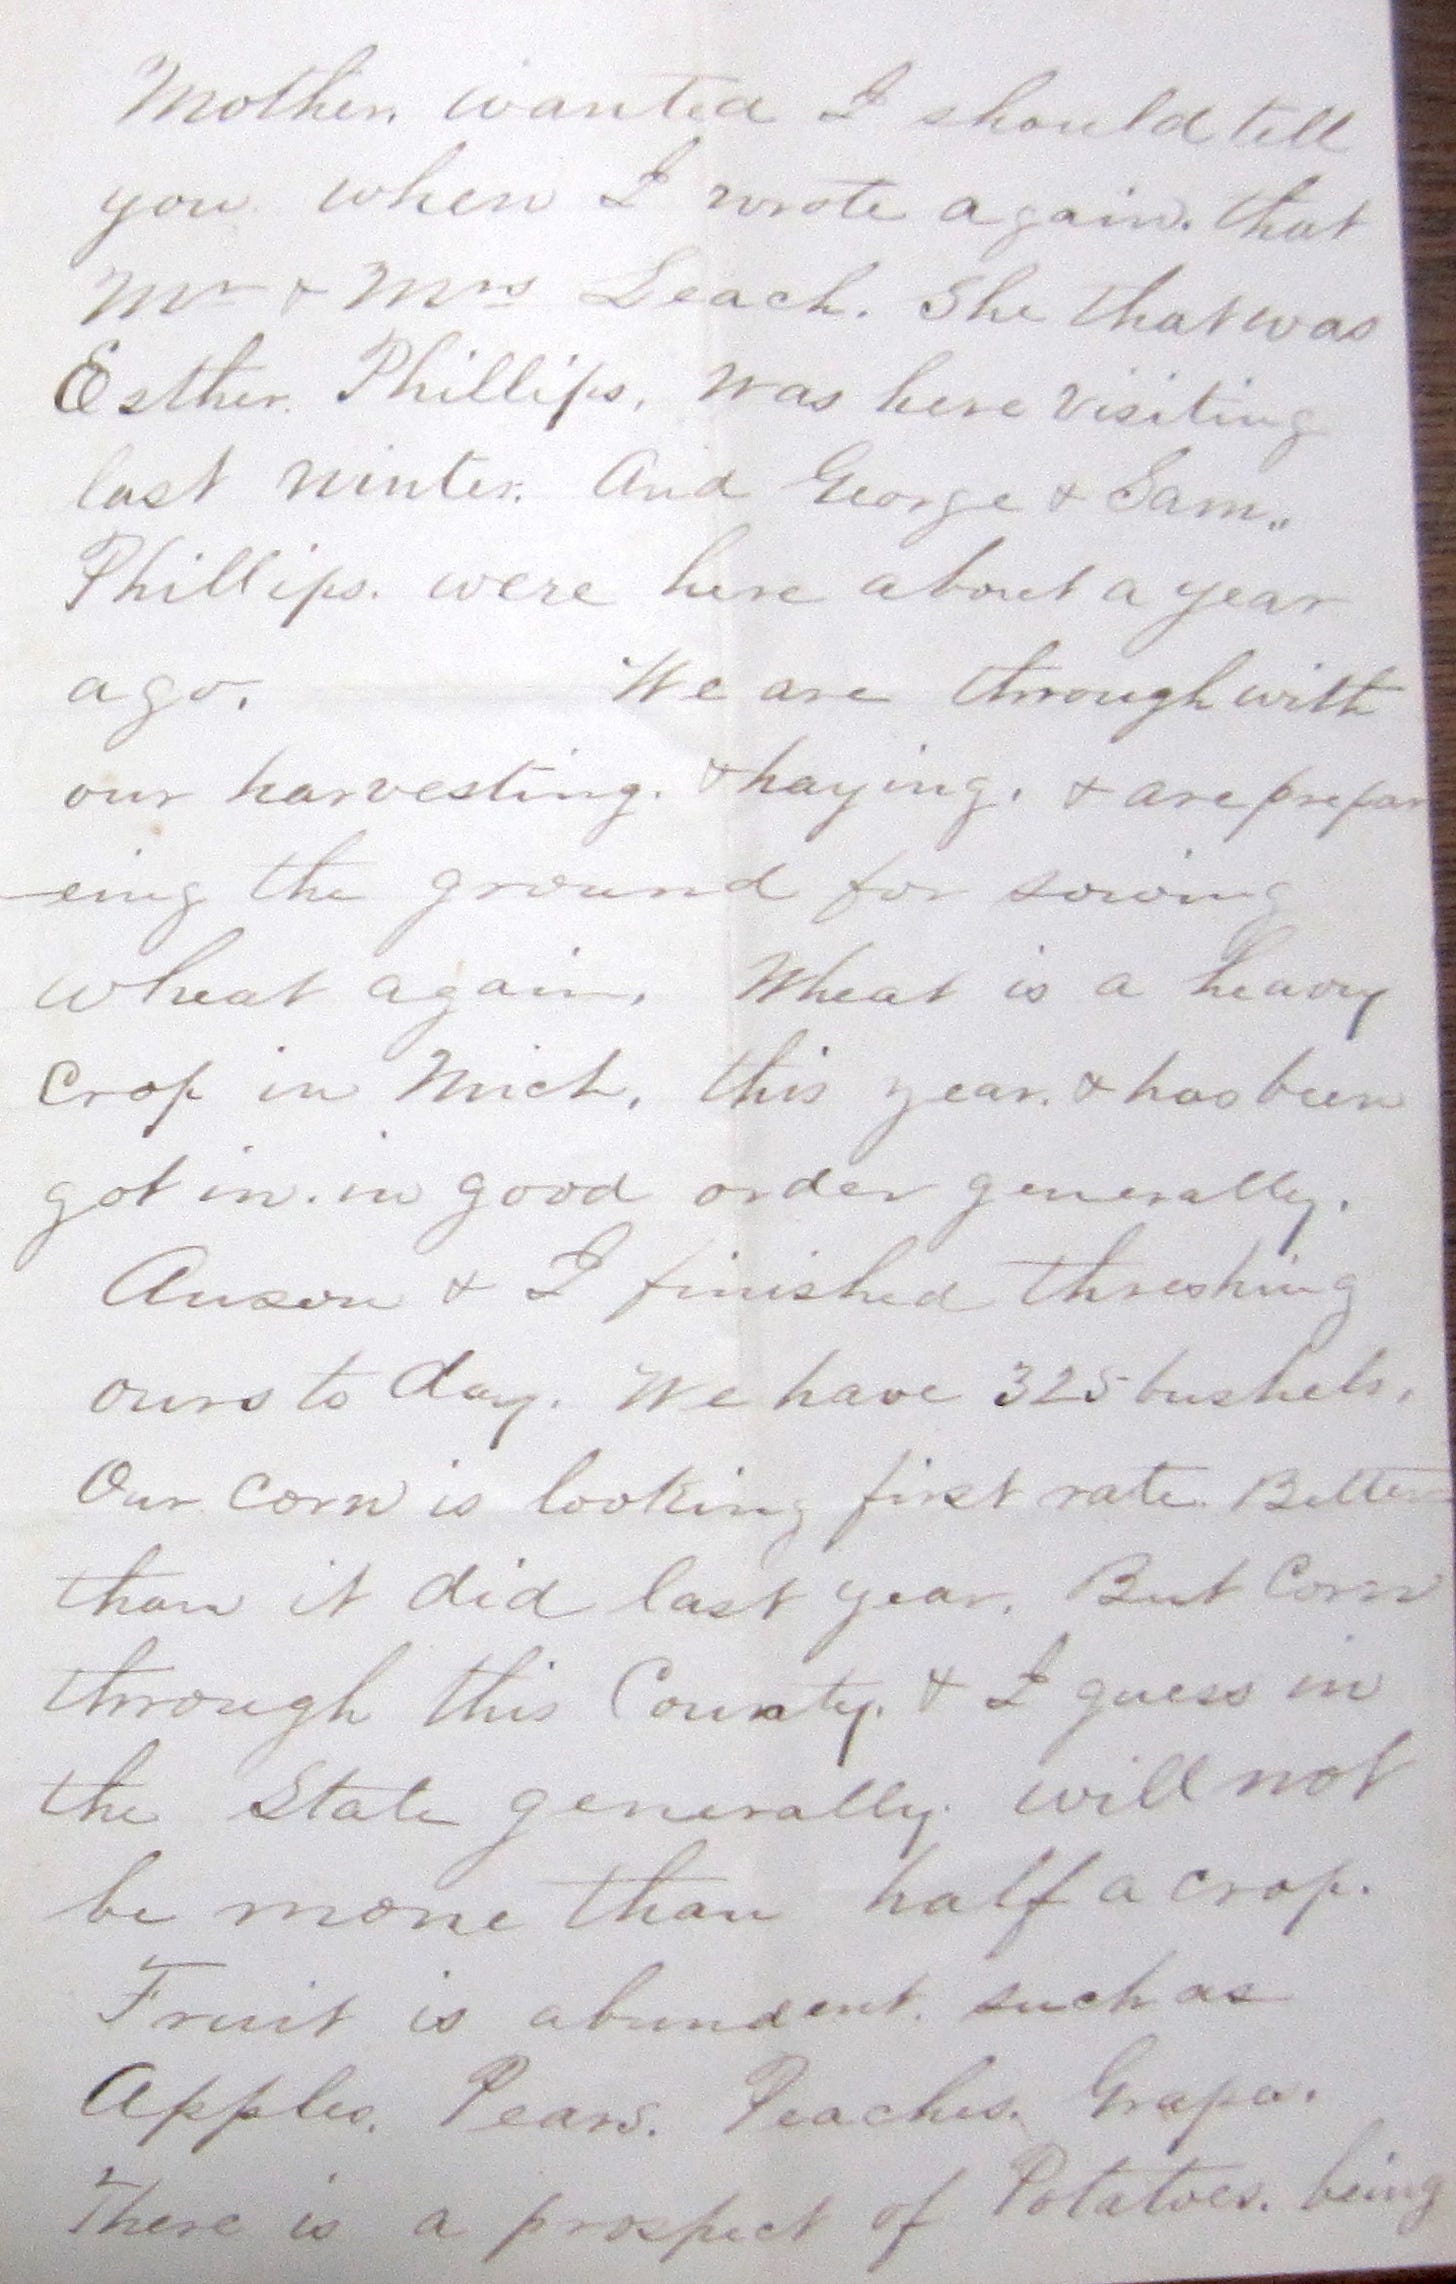 Mother. wanted I should tell
you when I wrote again. that
Mr & Mrs Leach. She that was
Esther. Phillips, was here visiting
last winter. And George & Sam,,
Phillips. were here about a year
ago. We are through with
our harvesting. & haying. & are prepar
-eing the ground for sowing
wheat again. Wheat is a heavy
Crop in Mich, this year. & has been
got in. in good order generally.
Anson & I finished threshing
ours to day. We have 325 bushels.
Our Corn is looking first rate. Better
than it did last year. But Corn
through this County. & I guess in
the State generally. will not
be more than half a crop.
Fruit is abundent. such as
Apples. Pears. Peaches. Grapes.
There is a prospect of Potatoes. being